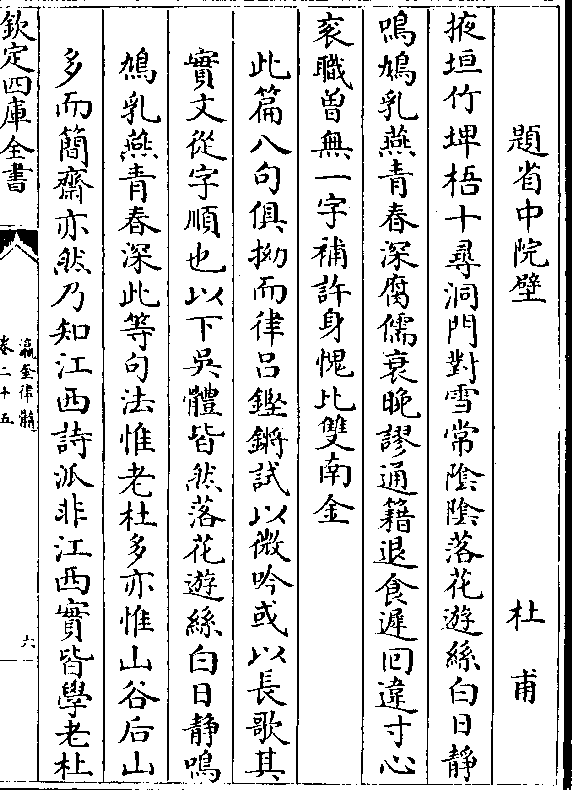 題省中院壁　杜甫
掖垣竹埤梧十尋洞門對雪常陰陰落花遊絲白日靜
鳴鳩乳燕青春深腐儒衰晚謬通籍退食遲回違寸心
衮職曾無一字補許身愧比雙南金
此篇八句俱拗而律呂鏗鏘試以微吟或以長歌其
實文從字順也以下吳體皆然落花遊絲白日靜鳴
鳩乳燕青春深此等句法惟老杜多亦惟山谷后山
多而簡齋亦然乃知江西詩派非江西實皆學老杜
欽定四庫全書
瀛奎律髓
卷二十五
六